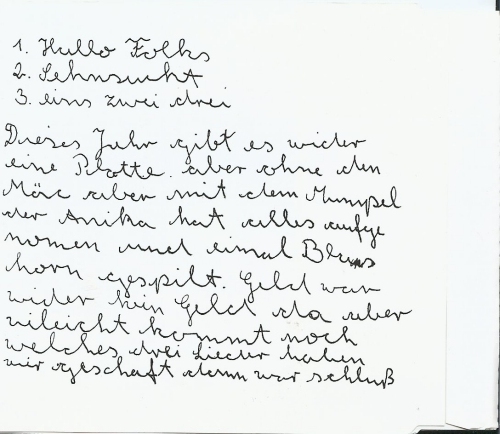 1. Hallo Folks
2. Sehnsucht
3. eins zwei drei
Dieses Jahr gibt es wider
eine Platte. aber ohne den
Märc aber mit dem Mumpel
der Anika hat alles aufge
nomen und einmal Blas
horn gespilt. Geld war
wider kein Geld da aber
vileicht kommt noch
welches drei Lieder haben
wir geschaft dann war schluß